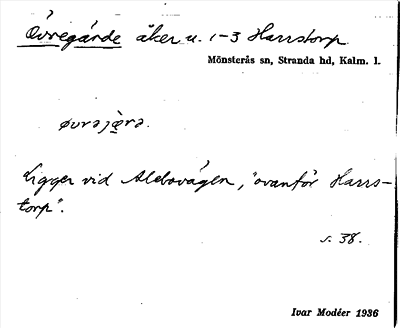 Övregärde åker u. 1-3 Harrstorp
Mönsterås sn, Stranda hd, Kalm. l.
øvrəjæ̀rə.
Ligger vid Alebovägen, "ovanför Harrs-
torp".
s. 38.
Ivar Modéer 1936